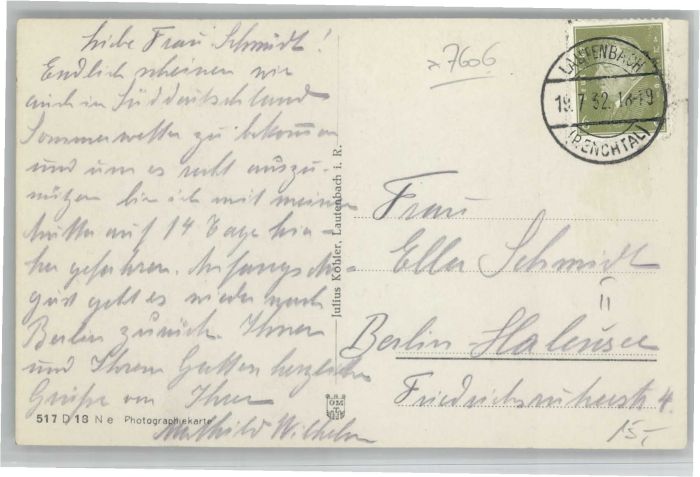 Liebe Frau Schmidt!
Endlich scheinen wir
auch in Süddeutschland
Sommerwetter zu bekommen
und um es recht auszu-
nützen bin ich mit meiner
Mutter auf 14 Tage hier-
her gefahren. Anfangs Au-
gust geht es wieder nach
Berlin zurück. Ihnen
und Ihrem Gatten herzliche
Grüße von Ihrer
Mathild Wilhelm
517 D 18 N e Photographiekarte
Julius Köbler, Lautenbach i. R.
*7606
LAUTENBACH
19.7.32.18-19
(RENCHTAL)
Frau
Ella Schmidt
Berlin-Halensee
Friedrichsruherstr. 4.
15,-